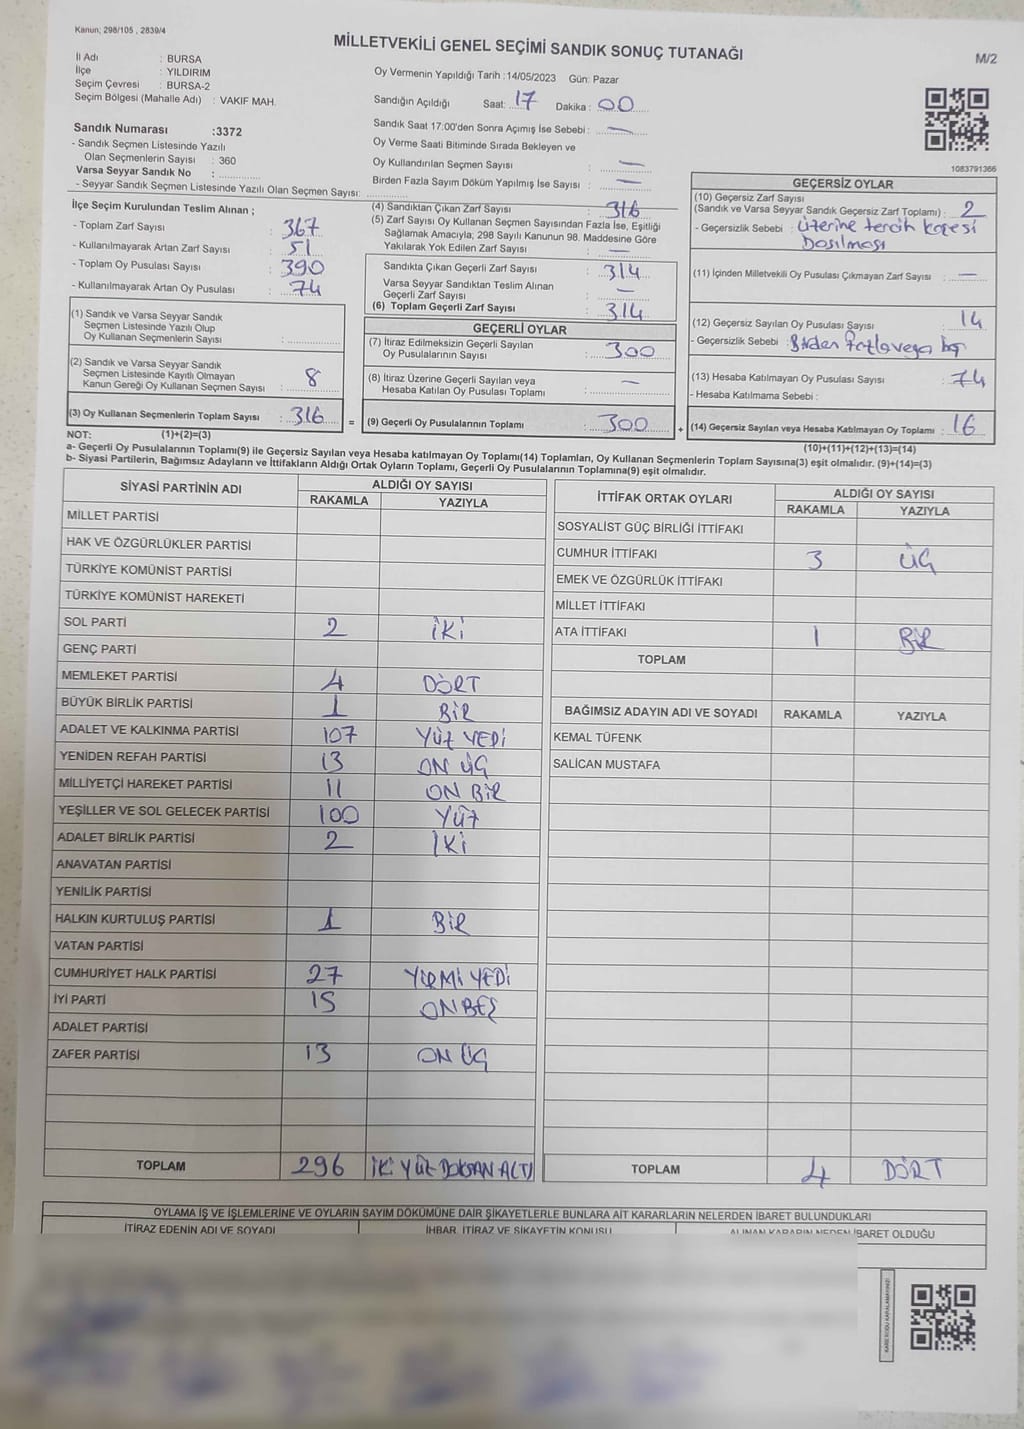 Kanun; 298/105 , 2839/4
MİLLETVEKİLİ GENEL SEÇİMİ SANDIK SONUÇ TUTANAĞI
M/2
İl Adı : BURSA
İlçe : YILDIRIM
Seçim Çevresi : BURSA-2
Seçim Bölgesi (Mahalle Adı) : VAKIF MAH.
Sandık Numarası :3372
- Sandık Seçmen Listesinde Yazılı
Olan Seçmenlerin Sayısı : 360
Varsa Seyyar Sandık No :
- Seyyar Sandık Seçmen Listesinde Yazılı Olan Seçmen Sayısı:
Oy Vermenin Yapıldığı Tarih :14/05/2023 Gün: Pazar
Sandığın Açıldığı Saat: 17 Dakika : 00
Sandık Saat 17:00'den Sonra Açımış İse Sebebi : —
Oy Verme Saati Bitiminde Sırada Bekleyen ve
Oy Kullandırılan Seçmen Sayısı : —
Birden Fazla Sayım Döküm Yapılmış İse Sayısı : —
1083791366
İlçe Seçim Kurulundan Teslim Alınan ;
- Toplam Zarf Sayısı : 367
- Kullanılmayarak Artan Zarf Sayısı : 51
- Toplam Oy Pusulası Sayısı : 390
- Kullanılmayarak Artan Oy Pusulası : 74
(1) Sandık ve Varsa Seyyar Sandık
Seçmen Listesinde Yazılı Olup
Oy Kullanan Seçmenlerin Sayısı :
(2) Sandık ve Varsa Seyyar Sandık
Seçmen Listesinde Kayıtlı Olmayan
Kanun Gereği Oy Kullanan Seçmen Sayısı : 8
(3) Oy Kullanan Seçmenlerin Toplam Sayısı : 316
(1)+(2)=(3)
(4) Sandıktan Çıkan Zarf Sayısı : 316
(5) Zarf Sayısı Oy Kullanan Seçmen Sayısından Fazla İse, Eşitliği
Sağlamak Amacıyla; 298 Sayılı Kanunun 98. Maddesine Göre
Yakılarak Yok Edilen Zarf Sayısı : —
Sandıkta Çıkan Geçerli Zarf Sayısı : 314
Varsa Seyyar Sandıktan Teslim Alınan
Geçerli Zarf Sayısı : —
(6) Toplam Geçerli Zarf Sayısı : 314
GEÇERLİ OYLAR
(7) İtiraz Edilmeksizin Geçerli Sayılan
Oy Pusulalarının Sayısı : 300
(8) İtiraz Üzerine Geçerli Sayılan veya
Hesaba Katılan Oy Pusulası Toplamı : —
= (9) Geçerli Oy Pusulalarının Toplamı : 300
GEÇERSİZ OYLAR
(10) Geçersiz Zarf Sayısı
(Sandık ve Varsa Seyyar Sandık Geçersiz Zarf Toplamı) : 2
- Geçersizlik Sebebi : üzerine tercih kaşesi
basılması
(11) İçinden Milletvekili Oy Pusulası Çıkmayan Zarf Sayısı : —
(12) Geçersiz Sayılan Oy Pusulası Sayısı : 14
- Geçersizlik Sebebi : Birden fazla veya boş
(13) Hesaba Katılmayan Oy Pusulası Sayısı : 74
- Hesaba Katılmama Sebebi :
+ (14) Geçersiz Sayılan veya Hesaba Katılmayan Oy Toplamı : 16
(10)+(11)+(12)+(13)=(14)
NOT:
a- Geçerli Oy Pusulalarının Toplamı(9) ile Geçersiz Sayılan veya Hesaba katılmayan Oy Toplamı(14) Toplamları, Oy Kullanan Seçmenlerin Toplam Sayısına(3) eşit olmalıdır. (9)+(14)=(3)
b- Siyasi Partilerin, Bağımsız Adayların ve İttifakların Aldığı Ortak Oyların Toplamı, Geçerli Oy Pusulalarının Toplamına(9) eşit olmalıdır.
SİYASİ PARTİNİN ADI ALDIĞI OY SAYISI
RAKAMLA YAZIYLA
MİLLET PARTİSİ
HAK VE ÖZGÜRLÜKLER PARTİSİ
TÜRKİYE KOMÜNİST PARTİSİ
TÜRKİYE KOMÜNİST HAREKETİ
SOL PARTİ 2 İKİ
GENÇ PARTİ
MEMLEKET PARTİSİ 4 DÖRT
BÜYÜK BİRLİK PARTİSİ 1 BİR
ADALET VE KALKINMA PARTİSİ 107 YÜZ YEDİ
YENİDEN REFAH PARTİSİ 13 ON ÜÇ
MİLLİYETÇİ HAREKET PARTİSİ 11 ON BİR
YEŞİLLER VE SOL GELECEK PARTİSİ 100 YÜZ
ADALET BİRLİK PARTİSİ 2 İKİ
ANAVATAN PARTİSİ
YENİLİK PARTİSİ
HALKIN KURTULUŞ PARTİSİ 1 BİR
VATAN PARTİSİ
CUMHURİYET HALK PARTİSİ 27 YİRMİ YEDİ
İYİ PARTİ 15 ON BEŞ
ADALET PARTİSİ
ZAFER PARTİSİ 13 ON ÜÇ
TOPLAM 296 İKİ YÜZ DOKSAN ALTI
İTTİFAK ORTAK OYLARI ALDIĞI OY SAYISI
RAKAMLA YAZIYLA
SOSYALİST GÜÇ BİRLİĞİ İTTİFAKI
CUMHUR İTTİFAKI 3 ÜÇ
EMEK VE ÖZGÜRLÜK İTTİFAKI
MİLLET İTTİFAKI
ATA İTTİFAKI 1 BİR
TOPLAM
BAĞIMSIZ ADAYIN ADI VE SOYADI RAKAMLA YAZIYLA
KEMAL TÜFENK
SALİCAN MUSTAFA
TOPLAM 4 DÖRT
OYLAMA İŞ VE İŞLEMLERİNE VE OYLARIN SAYIM DÖKÜMÜNE DAİR ŞİKAYETLERLE BUNLARA AİT KARARLARIN NELERDEN İBARET BULUNDUKLARI
İTİRAZ EDENİN ADI VE SOYADI İHBAR, İTİRAZ VE ŞİKAYETİN KONUSU ALINAN KARARIN NEDEN İBARET OLDUĞU